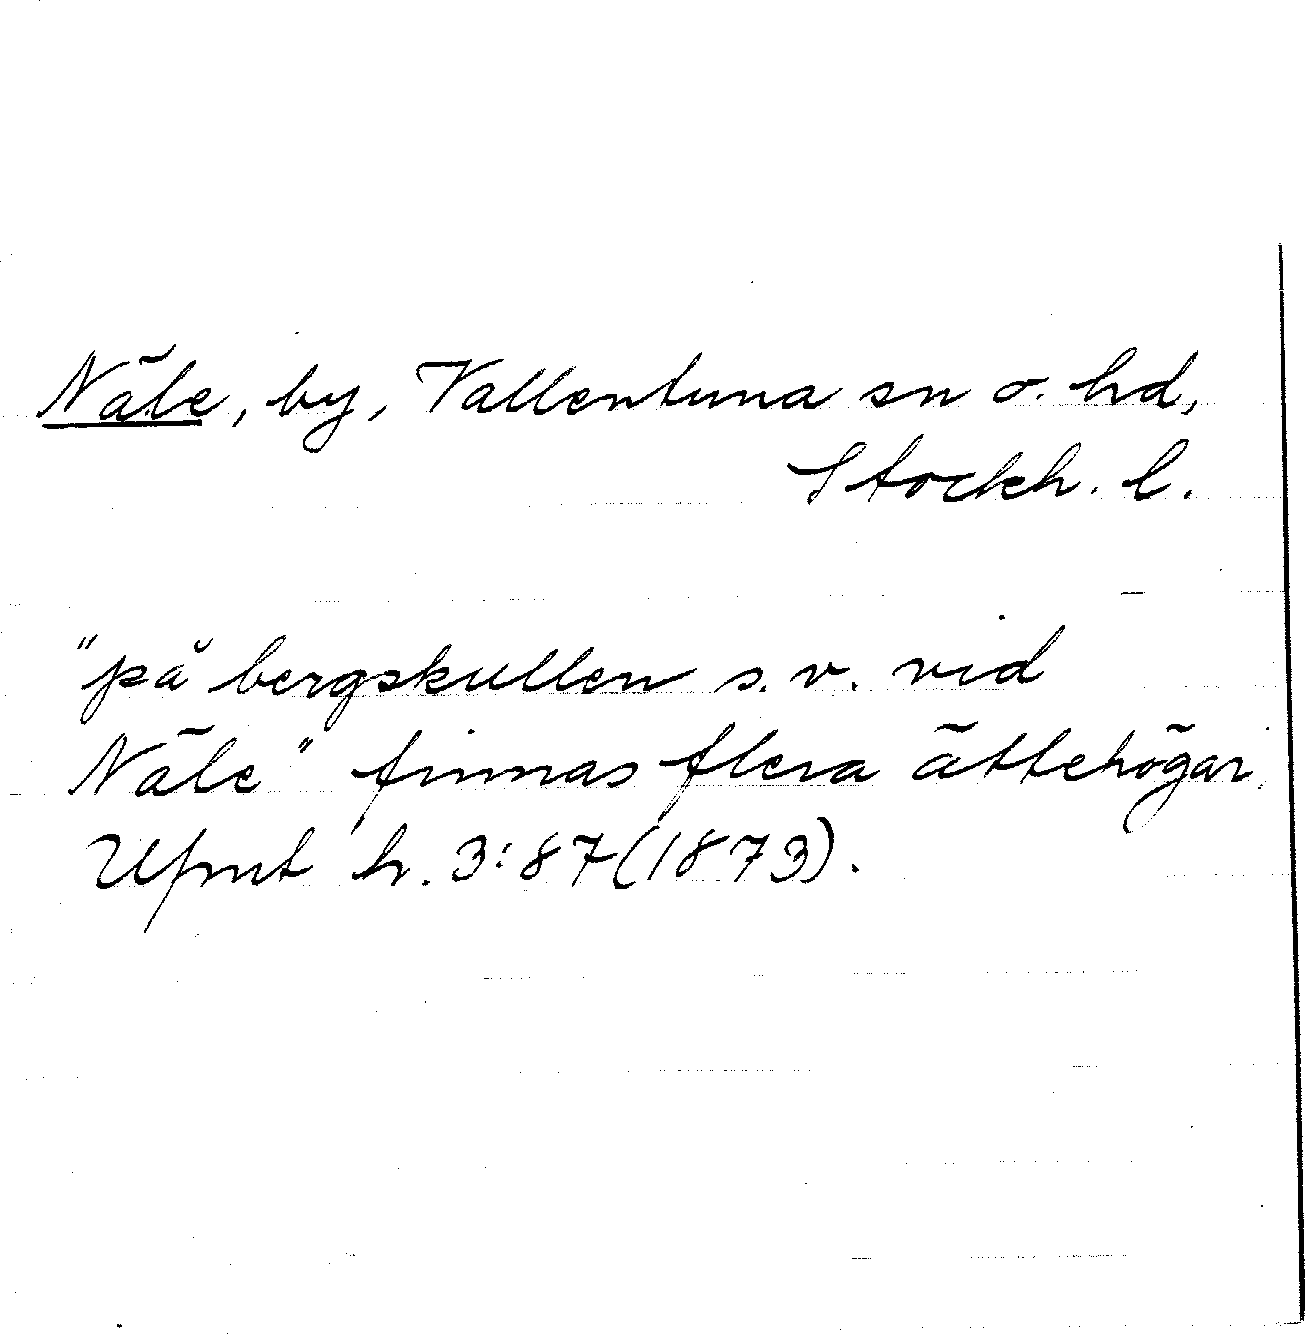 Näle, by, Vallentuna sn o. hd,
Stockh. l.
"på bergskullen s. v. vid
Näle" finnas flera ättehögar.
Ufmt h. 3:87 (1873).